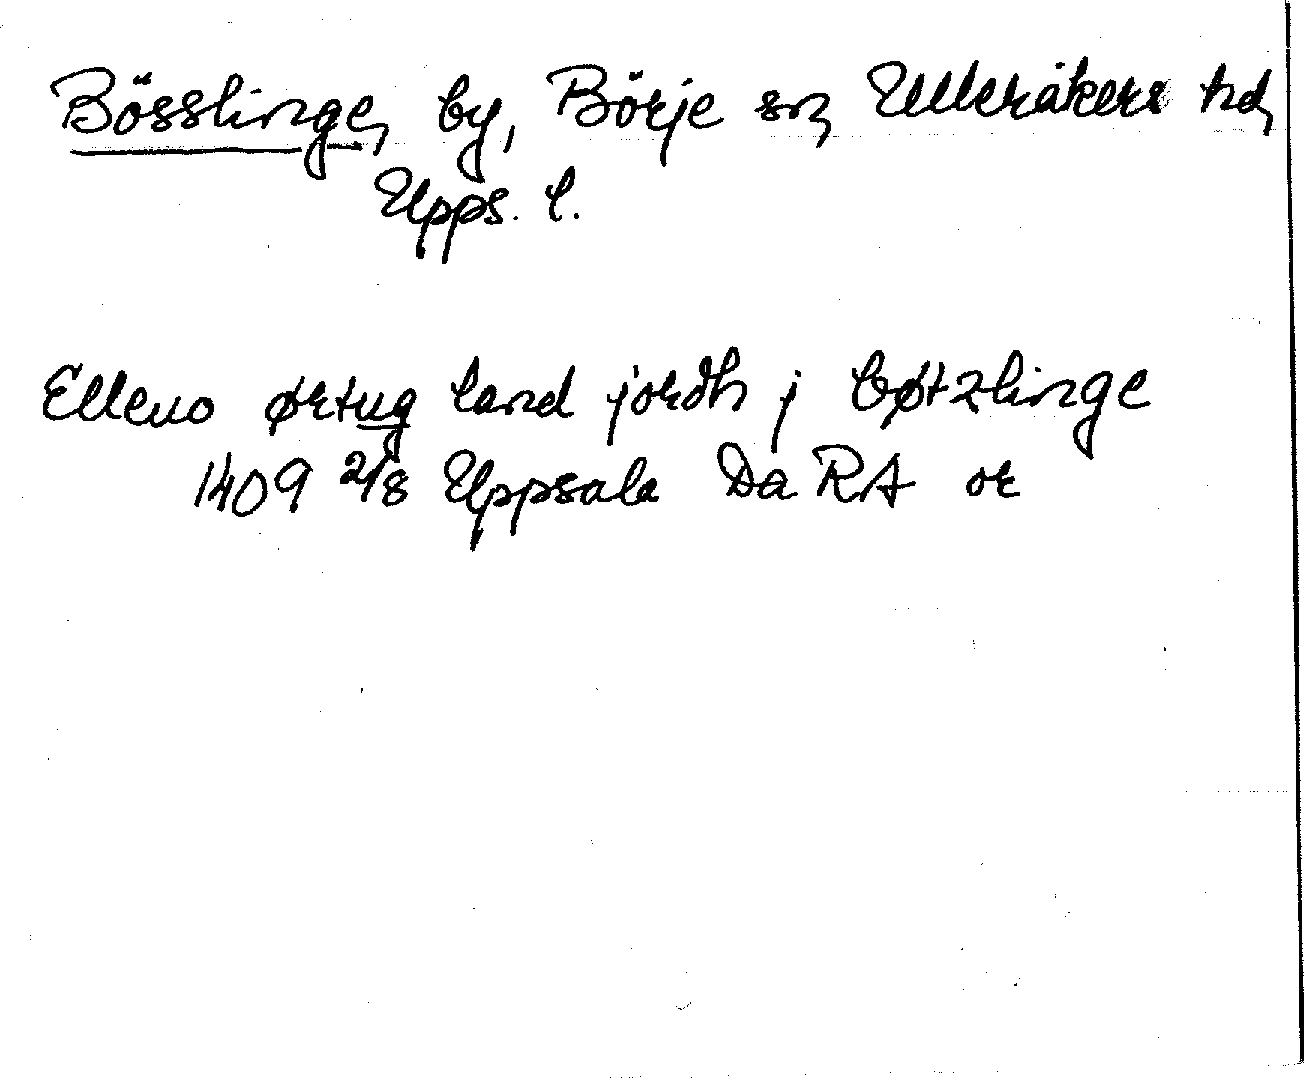 Bösslinge, by, Börje sn, Ulleråkers hd,
Upps. l.
Elleuo ørtug land jordh j bøtzlinge
1409 2/8 Uppsala Da RA or